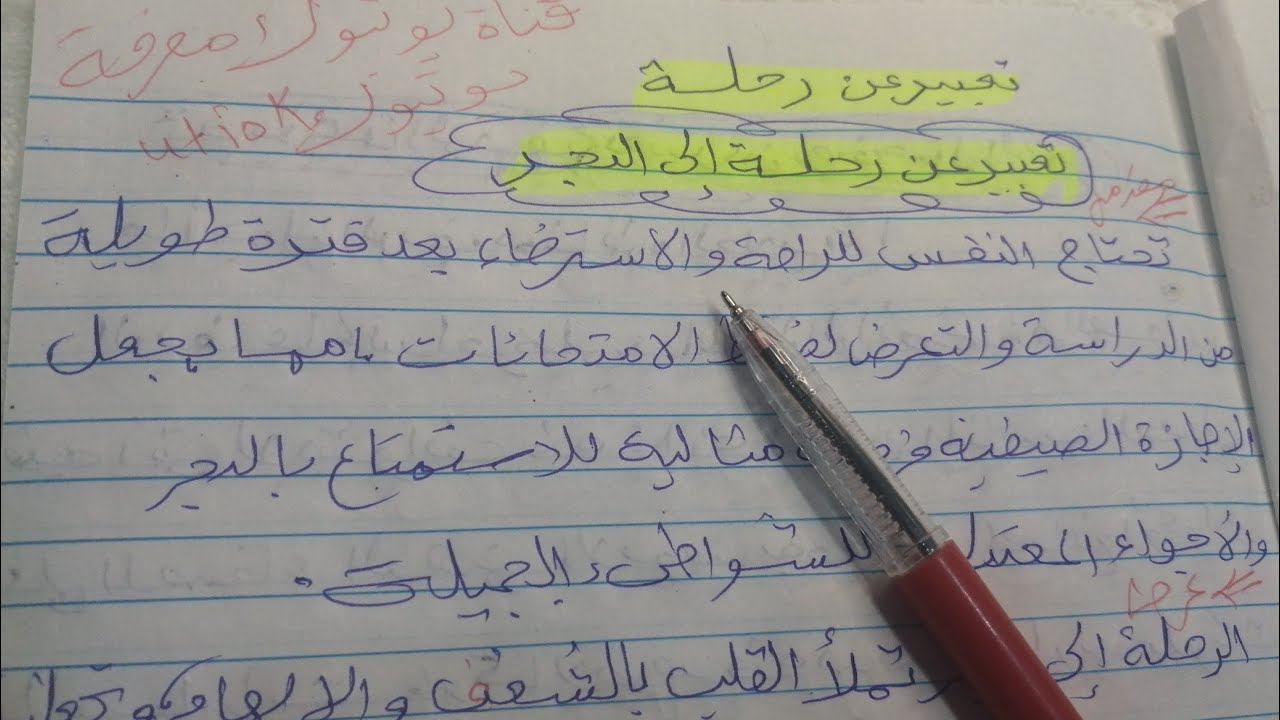 قناة يوتيوب معرفة
يوتيوب
utiok
تعبير عن رحلة
تعبير عن رحلة إلى البحر
تحتاج النفس للراحة والاسترخاء بعد فترة طويلة
من الدراسة والتعرض الامتحانات مما يجعل
الإجازة الصيفية مثالية للاستمتاع بالبحر
والأجواء للشواطئ الجميلة.
الرحلة إلى تملأ القلب بالشغف والإلهام